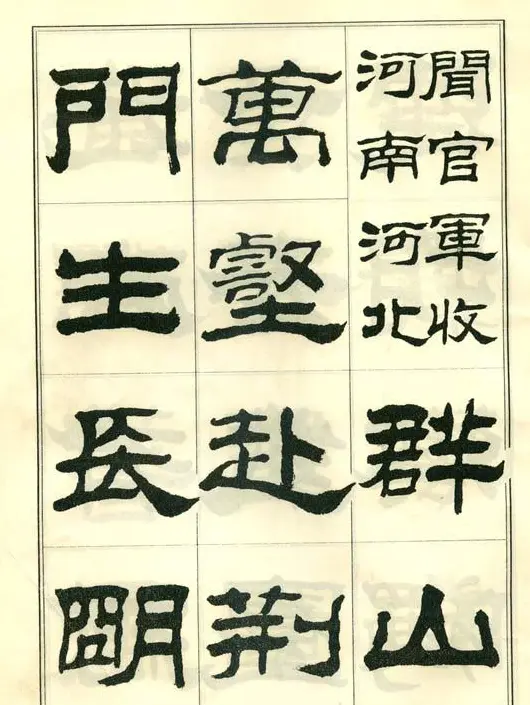 聞官軍收
河南河北
群山
萬壑赴荆
門生長朙